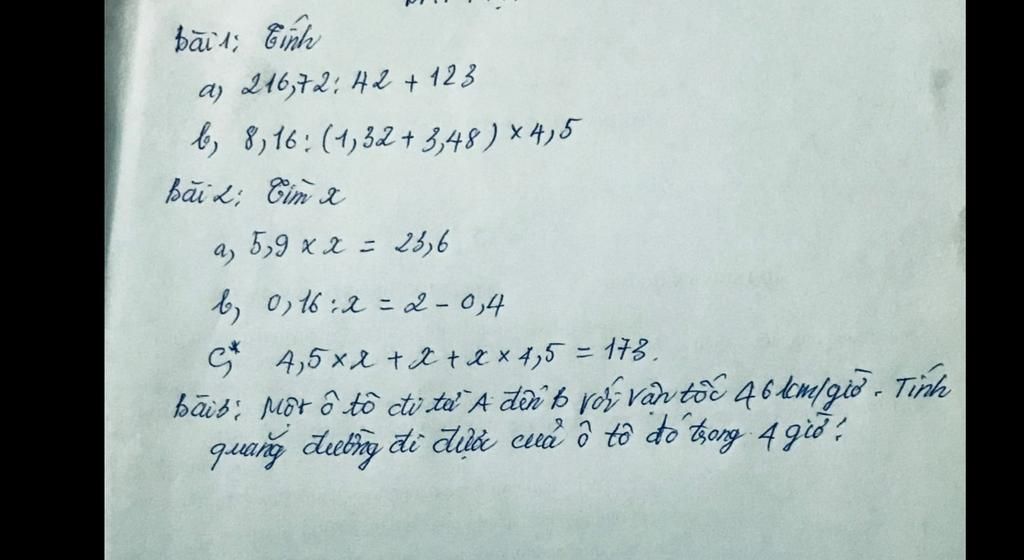 Bài 1: Tính
a, 216,72 : 42 + 123
b, 8,16 : (1,32 + 3,48) × 4,5
Bài 2: Tìm x
a, 5,9 × x = 23,6
b, 0,16 : x = 2 - 0,4
c,* 4,5 × x + x + x × 4,5 = 173.
Bài 3: Một ô tô đi từ A đến B với vận tốc 46 km/giờ. Tính
quãng đường đi được cuả ô tô đó trong 4 giờ?